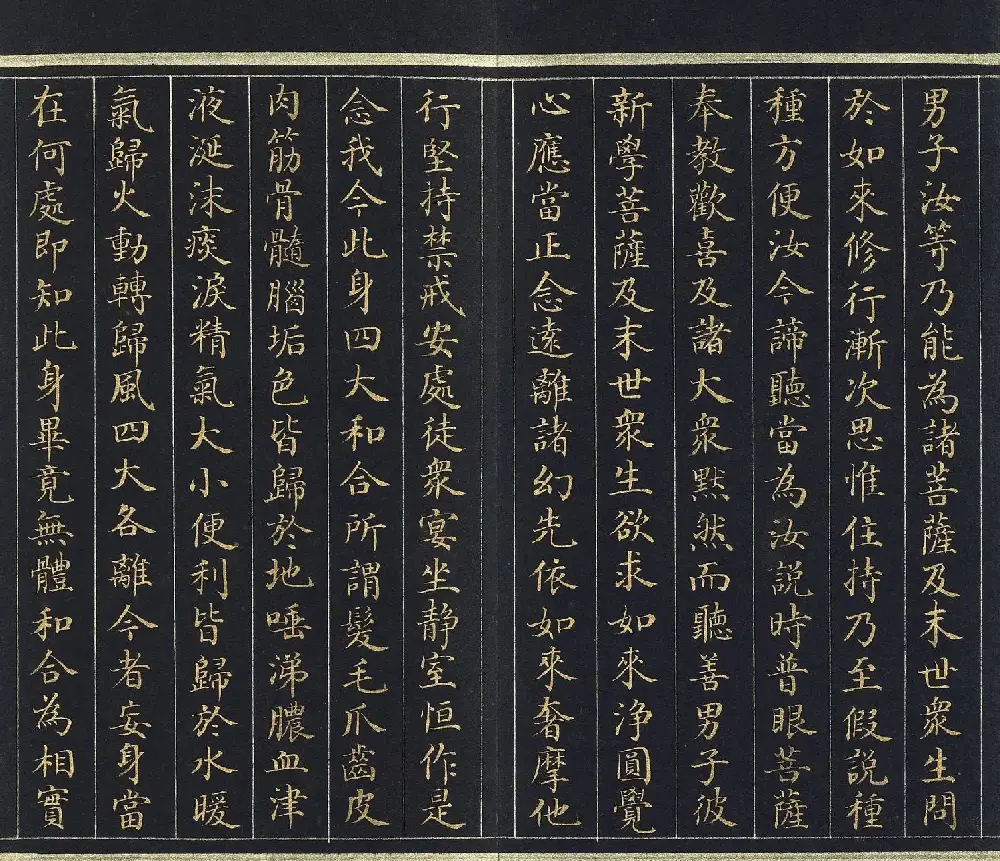 男子汝等乃能為諸菩薩及末世衆生問
於如來修行漸次思惟住持乃至假說種
種方便汝今諦聽當為汝說時普眼菩薩
奉教歡喜及諸大衆默然而聽善男子彼
新學菩薩及末世衆生欲求如來淨圓覺
心應當正念遠離諸幻先依如來奢摩他
行堅持禁戒安處徒衆宴坐静室恒作是
念我今此身四大和合所謂髮毛爪齒皮
肉筋骨髓腦垢色皆歸於地唾涕膿血津
液涎沫痰淚精氣大小便利皆歸於水暖
氣歸火動轉歸風四大各離今者妄身當
在何處即知此身畢竟無體和合為相實